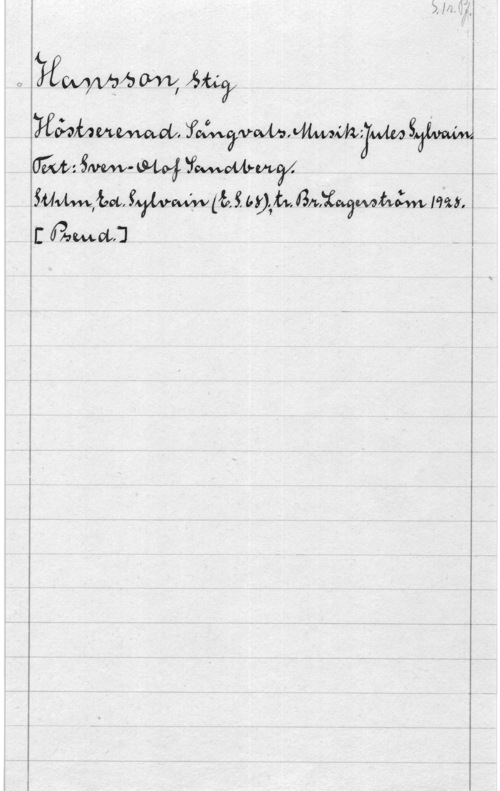 Hansson, Stig
Höstserenad. Sångvals. Musik: Jules Sylvain.
Text: Sven-Olof Sandberg.
Sthlm, Ed. Sylvain (E.S. 68); tr. Br. Lagerström 1928.
[Pseud.]